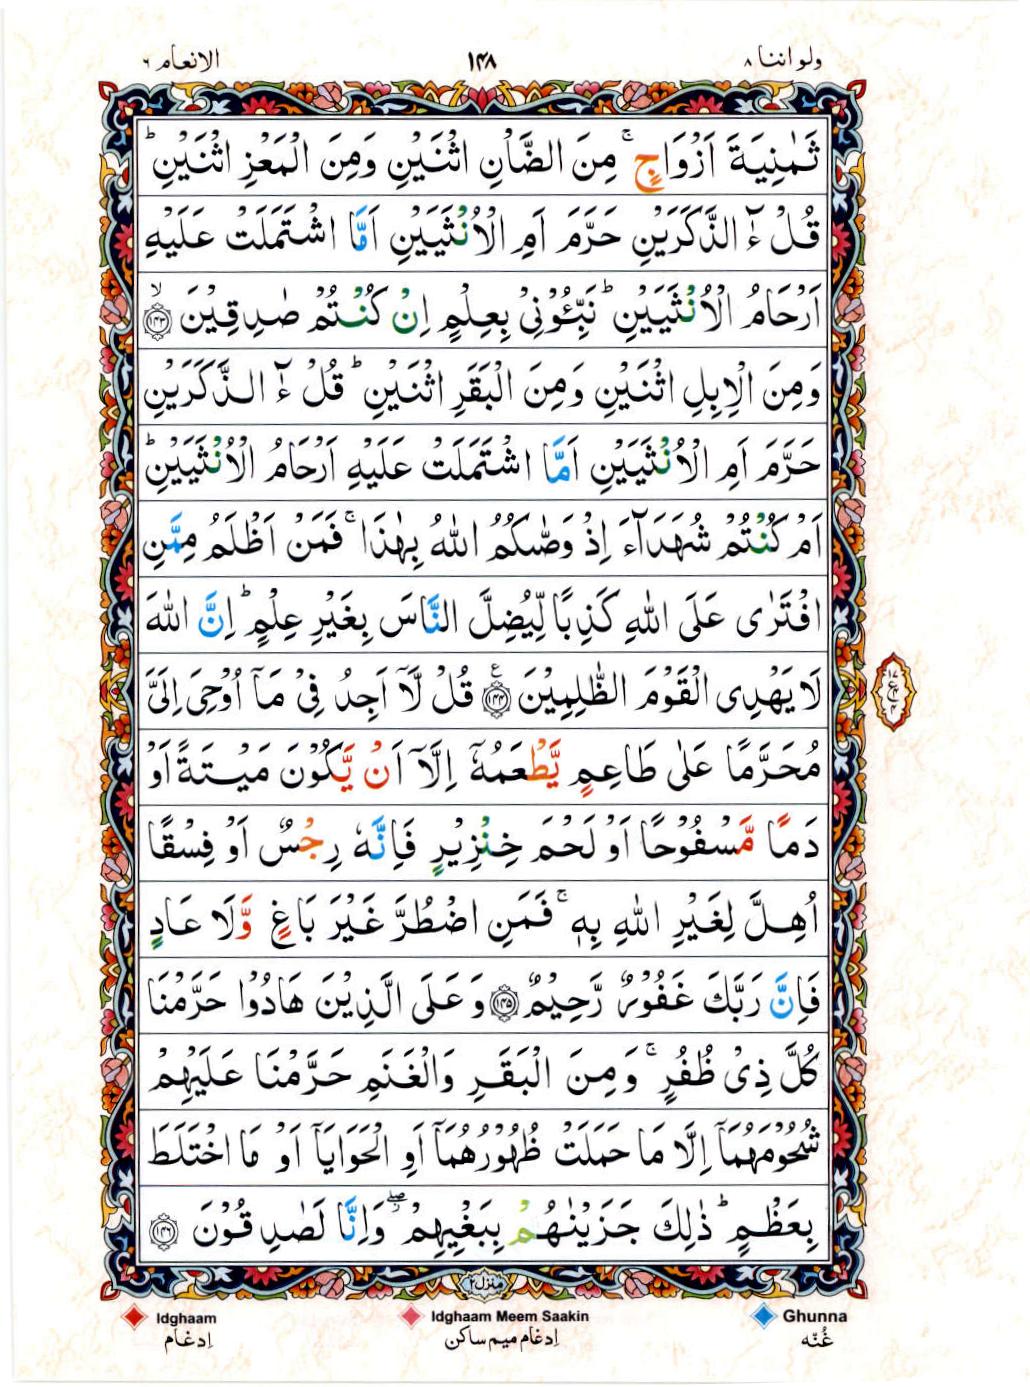 ولو اننا ۸
۱۴۸
الانعام ۶
ثَمٰنِيَةَ اَزْوَاجٍ ۚ مِنَ الضَّاْنِ اثْنَيْنِ وَمِنَ الْمَعْزِ اثْنَيْنِ ؕ
قُلْ ءٰٓ الذَّكَرَيْنِ حَرَّمَ اَمِ الْاُنْثَيَيْنِ اَمَّا اشْتَمَلَتْ عَلَيْهِ
اَرْحَامُ الْاُنْثَيَيْنِ ؕ نَبِّـُٔوْنِيْ بِعِلْمٍ اِنْ كُنْتُمْ صٰدِقِيْنَ ۙ‏﴿۱۴۳﴾
وَمِنَ الْاِبِلِ اثْنَيْنِ وَمِنَ الْبَقَرِ اثْنَيْنِ ؕ قُلْ ءٰٓ الذَّكَرَيْنِ
حَرَّمَ اَمِ الْاُنْثَيَيْنِ اَمَّا اشْتَمَلَتْ عَلَيْهِ اَرْحَامُ الْاُنْثَيَيْنِ ؕ
اَمْ كُنْتُمْ شُهَدَآءَ اِذْ وَصّٰٮكُمُ اللّٰهُ بِهٰذَا ۚ فَمَنْ اَظْلَمُ مِمَّنِ
افْتَرٰى عَلَى اللّٰهِ كَذِبًا لِّيُضِلَّ النَّاسَ بِغَيْرِ عِلْمٍ ؕ اِنَّ اللّٰهَ
لَا يَهْدِى الْقَوْمَ الظّٰلِمِيْنَ ﴿۱۴۴﴾ ع قُلْ لَّاۤ اَجِدُ فِيْ مَاۤ اُوْحِىَ اِلَىَّ
مُحَرَّمًا عَلٰى طَاعِمٍ يَّطْعَمُهٗۤ اِلَّاۤ اَنْ يَّكُوْنَ مَيْتَةً اَوْ
دَمًا مَّسْفُوْحًا اَوْ لَحْمَ خِنْزِيْرٍ فَاِنَّهٗ رِجْسٌ اَوْ فِسْقًا
اُهِلَّ لِغَيْرِ اللّٰهِ بِهٖ ۚ فَمَنِ اضْطُرَّ غَيْرَ بَاغٍ وَّلَا عَادٍ
فَاِنَّ رَبَّكَ غَفُوْرٌ رَّحِيْمٌ ﴿۱۴۵﴾ وَعَلَى الَّذِيْنَ هَادُوْا حَرَّمْنَا
كُلَّ ذِيْ ظُفُرٍ ۚ وَمِنَ الْبَقَرِ وَالْغَنَمِ حَرَّمْنَا عَلَيْهِمْ
شُحُوْمَهُمَاۤ اِلَّا مَا حَمَلَتْ ظُهُوْرُهُمَاۤ اَوِ الْحَوَايَاۤ اَوْ مَا اخْتَلَطَ
بِعَظْمٍ ؕ ذٰلِكَ جَزَيْنٰهُمْ بِبَغْيِهِمْ ۖ وَاِنَّا لَصٰدِقُوْنَ ﴿۱۴۶﴾
منزل ۲
Ghunna
غُنّه
Idghaam Meem Saakin
اِدغام میم ساکن
Idghaam
اِدغام